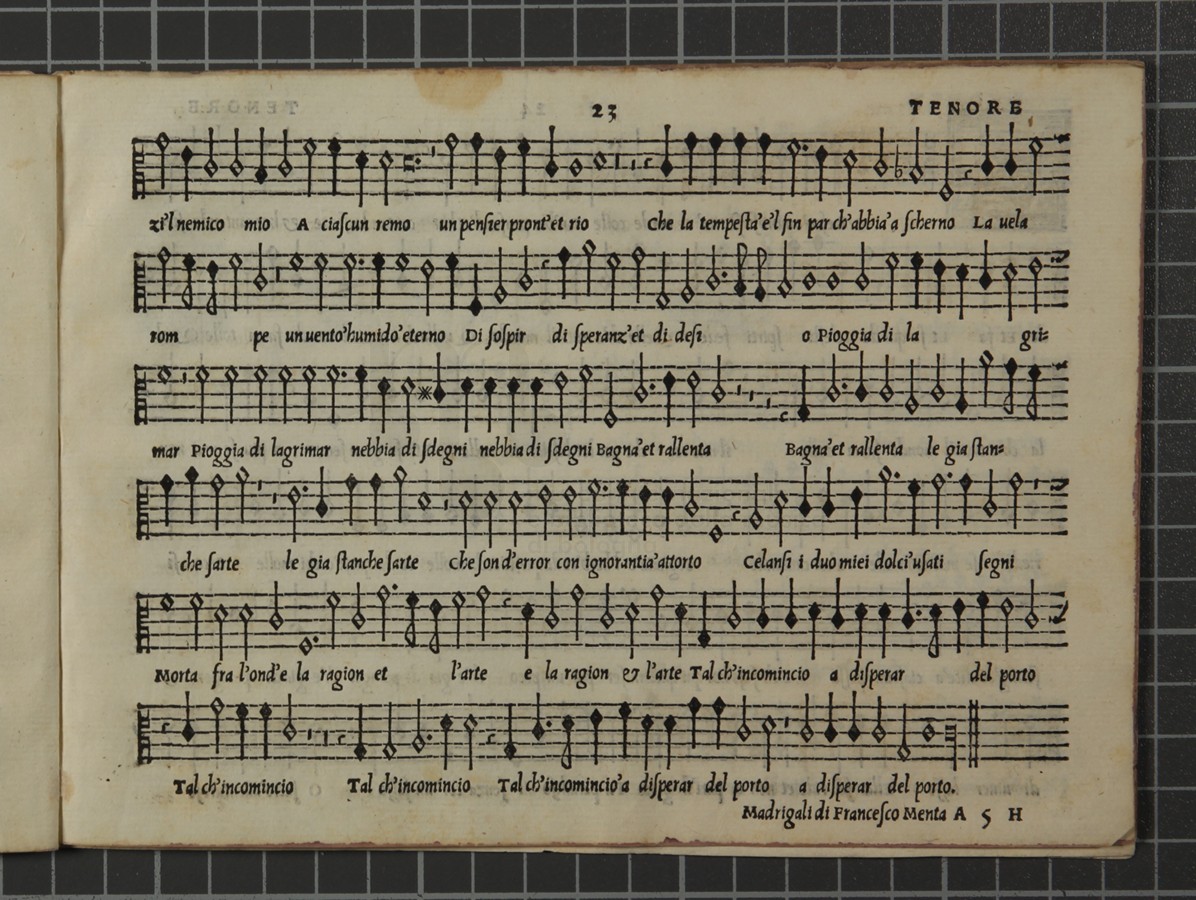 23 TENORE
zi'l nemico mio A ciaſcun remo un penſier pront'et rio Che la tempeſta'e'l fin par ch'abbia'a ſcherno La uela
rom pe un uento'humido'eterno Di ſoſpir di ſperanz'et di deſi o Pioggia di la gri=
mar Pioggia di lagrimar nebbia di ſdegni nebbia di ſdegni Bagna'et rallenta Bagna'et rallenta le gia ſtan=
che ſarte le gia ſtanche ſarte Che ſon d'error con ignorantia'attorto Celanſi i duo miei dolci'uſati ſegni
Morta fra l'ond'e la ragion et l'arte e la ragion & l'arte Tal ch'incomincio a diſperar del porto
Tal ch'incomincio Tal ch'incomincio Tal ch'incomincio'a diſperar del porto a diſperar del porto.
Madrigali di Franceſco Menta A 5 H